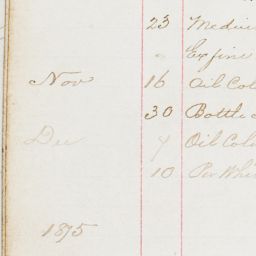 23 Medici
" Ex fine
Nov 16 Oil Col
30 Bottle
Dec 9 Oil Col
10 Per Whi
1875